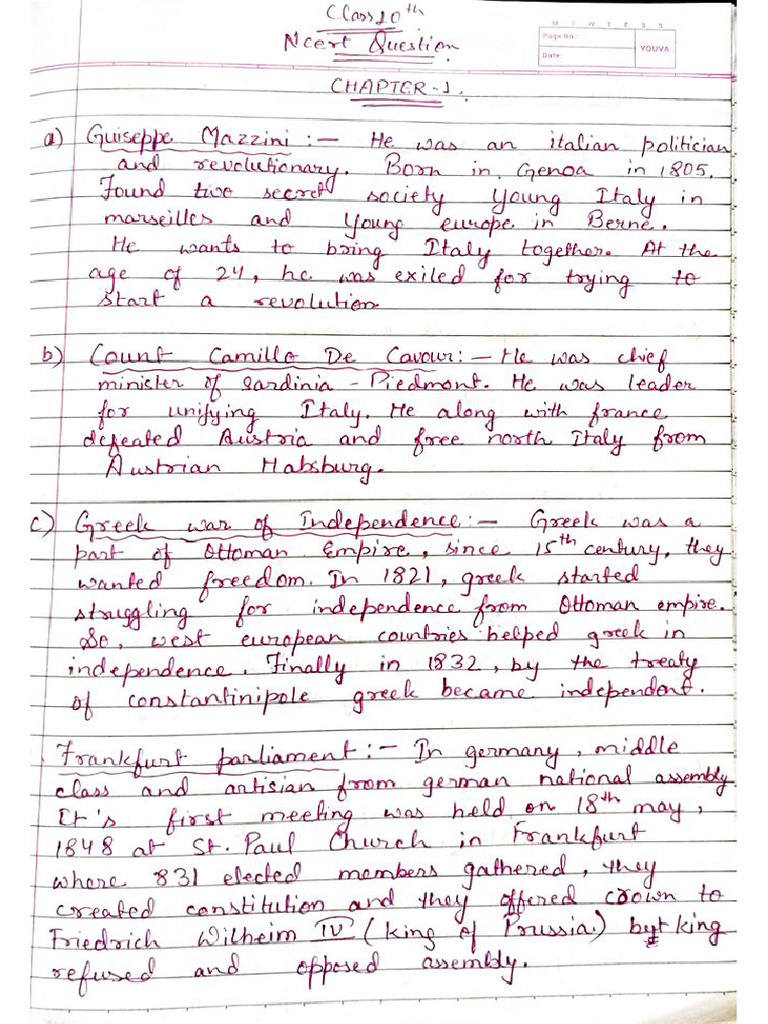 Class 10th
Ncert Question
M T W T F S S
Page No.:
Date:
YOUVA
CHAPTER-1.
a) Guiseppe Mazzini :- He was an italian politician
and revolutionary. Born in Genoa in 1805.
Found two secret society Young Italy in
marseilles and Young europe in Berne.
He wants to bring Italy together. At the
age of 24, he was exiled for trying to
start a revolution
b) Count Camillo De Cavour:- He was chief
minister of Sardinia - Piedmont. He was leader
for unifying Italy. He along with france
defeated Austria and free north Italy from
Austrian Habsburg.
c) Greek war of Independence:- Greek was a
part of Ottoman Empire, since 15th century, they
wanted freedom. In 1821, greek started
struggling for independence from Ottoman empire.
So, west european countries helped greek in
independence. Finally in 1832, by the treaty
of constantinipole greek became independent.
Frankfurt parliament:- In germany, middle
class and artisian from german national assembly.
It's first meeting was held on 18th may,
1848 at St. Paul Church in Frankfurt
where 831 elected members gathered, they
created constitution and they offered crown to
Friedrich Wilheim IV (king of Prussia.) but king
refused and opposed assembly.